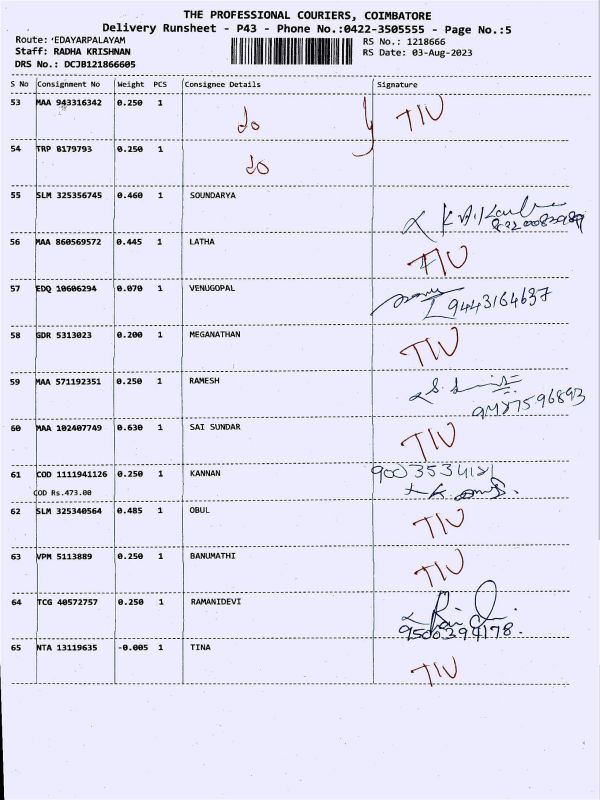 THE PROFESSIONAL COURIERS, COIMBATORE
Delivery Runsheet - P43 - Phone No.:0422-3505555 - Page No.:5
Route: 'EDAYARPALAYAM
RS No.: 1218666
Staff: RADHA KRISHNAN
RS Date: 03-Aug-2023
DRS No.: DCJB121866605
S No Consignment No Weight PCS Consignee Details Signature
53 MAA 943316342 0.250 1 do TIU
54 TRP 8179793 0.250 1 do
55 SLM 325356745 0.460 1 SOUNDARYA
56 MAA 860569572 0.445 1 LATHA TIU
57 EDQ 10606294 0.070 1 VENUGOPAL 9443164637
58 GDR 5313023 0.200 1 MEGANATHAN TIU
59 MAA 571192351 0.250 1 RAMESH
60 MAA 102407749 0.630 1 SAI SUNDAR TIU
61 COD 1111941126 0.250 1 KANNAN
COD Rs.473.00
62 SLM 325340564 0.485 1 OBUL TIU
63 VPM 5113889 0.250 1 BANUMATHI TIU
64 TCG 40572757 0.250 1 RAMANIDEVI
9500394178.
65 NTA 13119635 -0.005 1 TINA TIU